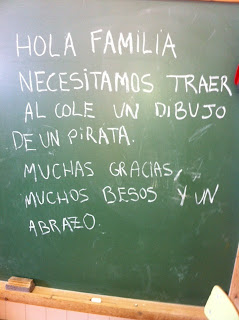 HOLA FAMILIA
NECESITAMOS TRAER
AL COLE UN DIBUJO
DE UN PIRATA.
MUCHAS GRACIAS,
MUCHOS BESOS Y UN
ABRAZO.